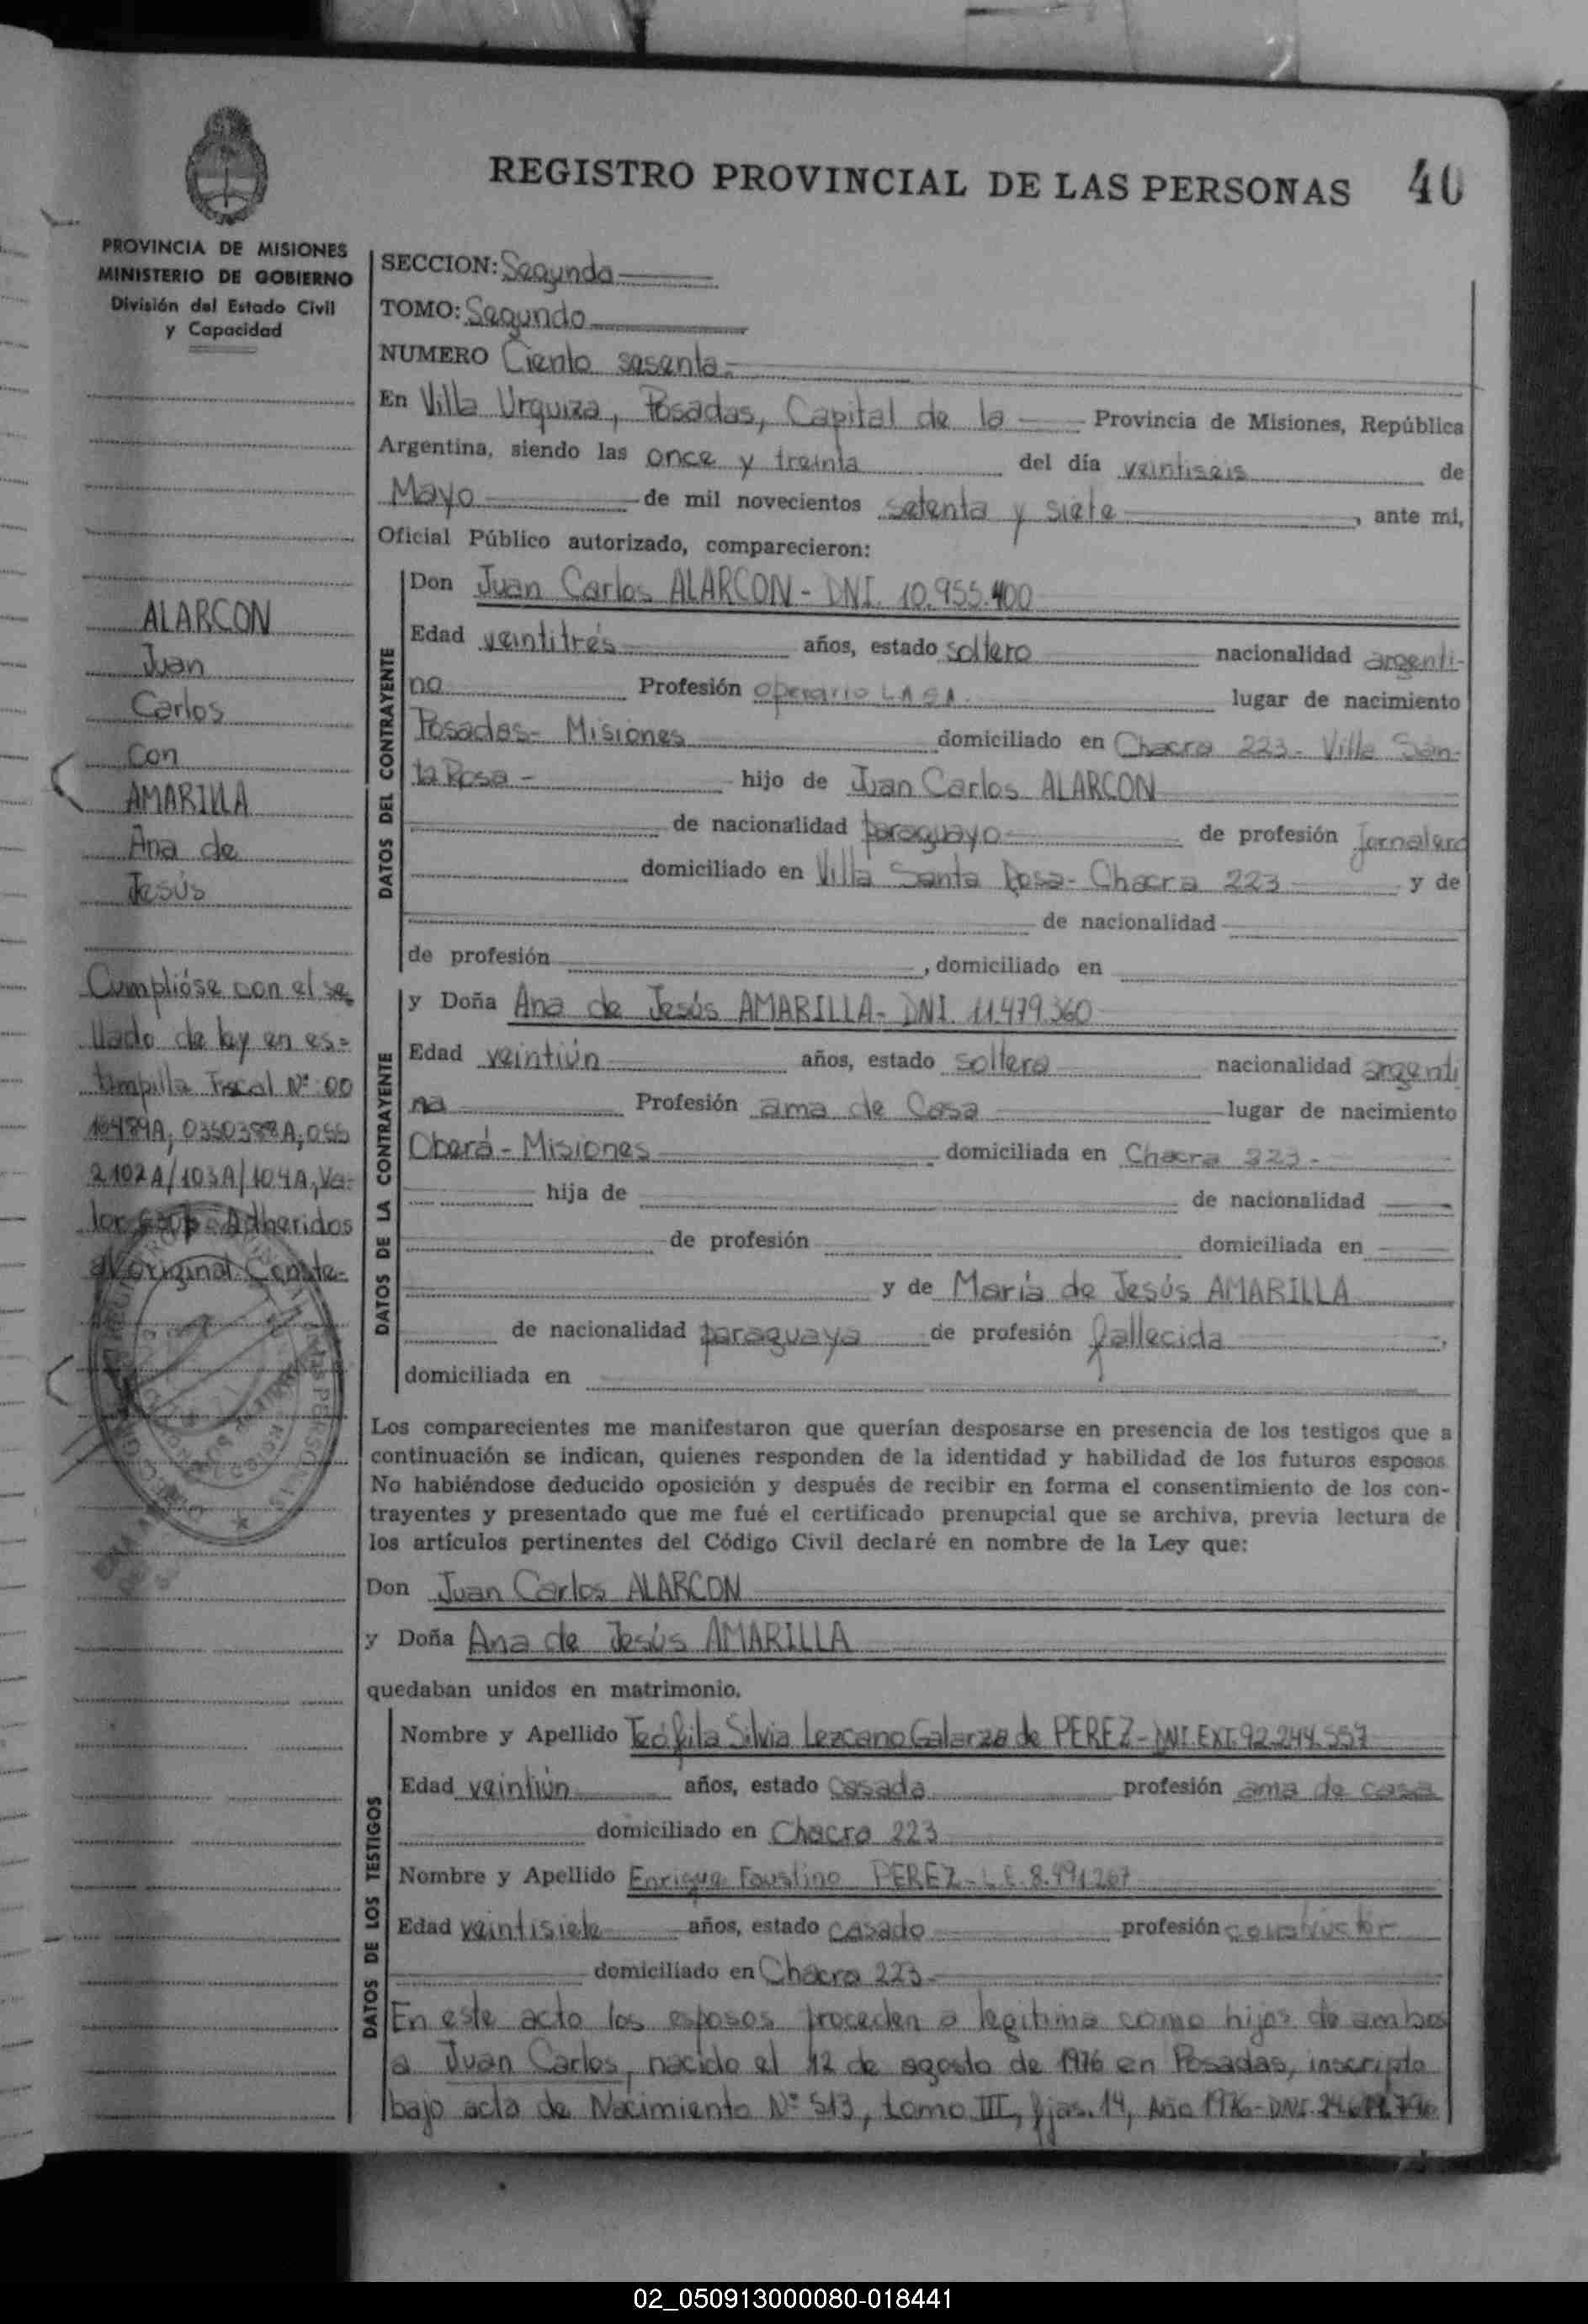 REGISTRO PROVINCIAL DE LAS PERSONAS 40
PROVINCIA DE MISIONES
MINISTERIO DE GOBIERNO
División del Estado Civil
y Capacidad
ALARCON
Juan
Carlos
con
AMARILLA
Ana de
Jesús
Cumplióse con el se
llado de ley en es=
tampilla Fiscal Nº 00
A, 0350388A, 055
2102A/103A/104A, Va-
lor Adheridos
al original. Conste-
SECCION: Segunda
TOMO: Segundo
NUMERO Ciento sesenta.-
En Villa Urquiza, Posadas, Capital de la Provincia de Misiones, República
Argentina, siendo las once y treinta del día veintiseis de
Mayo de mil novecientos setenta y siete, ante mi,
Oficial Público autorizado, comparecieron:
DATOS DEL CONTRAYENTE
Don Juan Carlos ALARCON - DNI. 10.955.400
Edad veintitrés años, estado soltero nacionalidad argenti-
no Profesión operario LASA. lugar de nacimiento
Posadas- Misiones domiciliado en Chacra 223- Villa San-
ta Rosa- hijo de Juan Carlos ALARCON
de nacionalidad paraguayo de profesión Jornalero
domiciliado en Villa Santa Rosa- Chacra 223 y de
de nacionalidad
de profesión , domiciliado en
DATOS DE LA CONTRAYENTE
y Doña Ana de Jesús AMARILLA- DNI. 11.479.360
Edad veintiún años, estado soltera nacionalidad argenti
na Profesión ama de Casa lugar de nacimiento
Oberá- Misiones domiciliada en Chacra 223-
hija de de nacionalidad
de profesión domiciliada en
y de María de Jesús AMARILLA
de nacionalidad paraguaya de profesión fallecida,
domiciliada en
Los comparecientes me manifestaron que querían desposarse en presencia de los testigos que a
continuación se indican, quienes responden de la identidad y habilidad de los futuros esposos
No habiéndose deducido oposición y después de recibir en forma el consentimiento de los con-
trayentes y presentado que me fué el certificado prenupcial que se archiva, previa lectura de
los artículos pertinentes del Código Civil declaré en nombre de la Ley que:
Don Juan Carlos ALARCON
y Doña Ana de Jesús AMARILLA
quedaban unidos en matrimonio.
DATOS DE LOS TESTIGOS
Nombre y Apellido Teófila Silvia Lezcano Galarza de PEREZ- DNI.EXT.92.244.557
Edad veintiún años, estado casada profesión ama de casa
domiciliado en Chacra 223
Nombre y Apellido Enrique Faustino PEREZ- L.E. 8.491.267
Edad veintisiete años, estado casado profesión constructor
domiciliado en Chacra 223-
En este acto los esposos proceden a legitima como hijos de ambos
a Juan Carlos, nacido el 12 de agosto de 1976 en Posadas, inscripto
bajo acta de Nacimiento Nº 513, tomo III, fjas. 14, Año 1976- DNI.
02_050913000080-018441